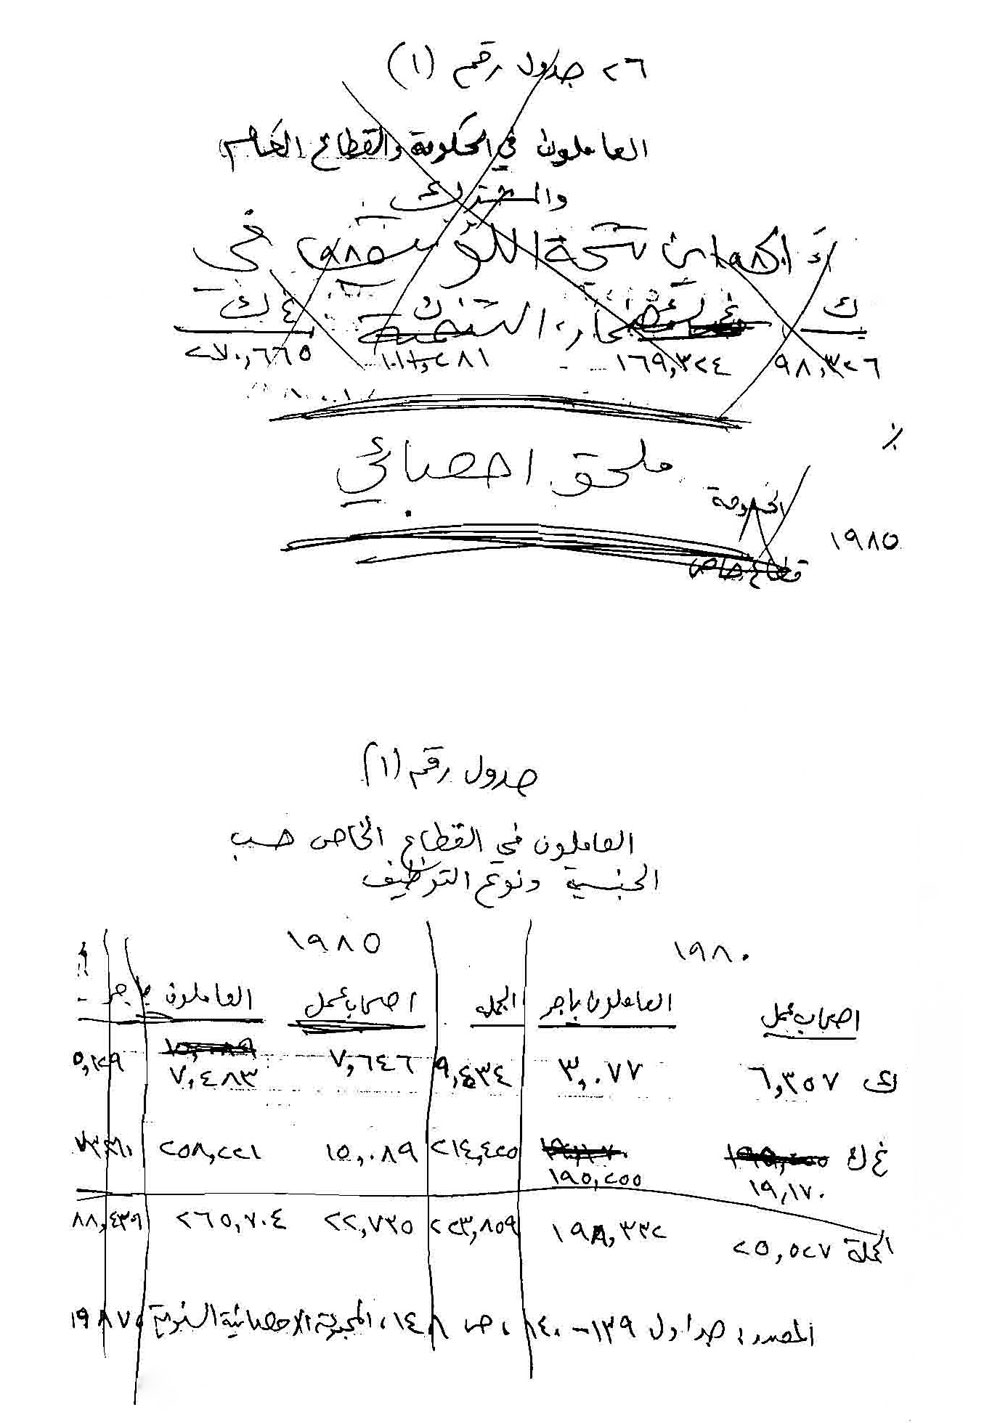 ٢٦ جدول رقم (١)
العاملون في الحكومة والقطاع العام
والمشترك
في
ك غ ك
٩٨,٣٢٦ ١٦٩,٣٢٤ ٢٧٠,٦٦٥
٪
ملحق احصائي
الحكومة
١٩٨٥
قطاع خاص
جدول رقم (١)
العاملون في القطاع الخاص حسب
الجنسية ونوع التوظيف
١٩٨٠ ١٩٨٥
اصحاب عمل العاملون باجر الجملة اصحاب عمل العاملون باجر
ك ٦,٣٥٧ ٣,٠٧٧ ٩,٤٣٤ ٧,٦٤٦ ١٥,٠٨٩ ٧,٤٨٣ ٥,١٢٩
غ ك ١٩,١٧٠ ١٩٥,٢٥٥ ٢١٤,٤٢٥ ١٥,٠٨٩ ٢٥٨,٢٢١
الجملة ٢٥,٥٢٧ ١٩٨,٣٣٢ ٢٢٣,٨٥٩ ٢٢,٧٣٥ ٢٦٥,٧٠٤ ٨٨,٤٣٩
المصدر: جداول ١٣٩-١٤٠، ص ١٤٨، المجموعة الاحصائية السنوية، ١٩٨٧